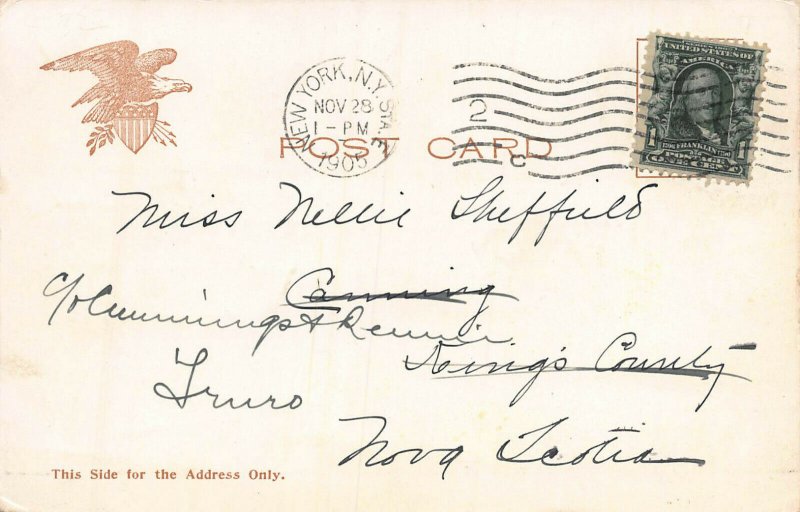 NEW YORK, N.Y. STA. E
NOV 28
1 - PM
1905
2
C
UNITED STATES OF
AMERICA
1 FRANKLIN 1
POSTAGE
ONE CENT
POST CARD
Miss Nellie Sheffield
Canning
c/o Cummings &
King's County
Truro
Nova Scotia
This Side for the Address Only.